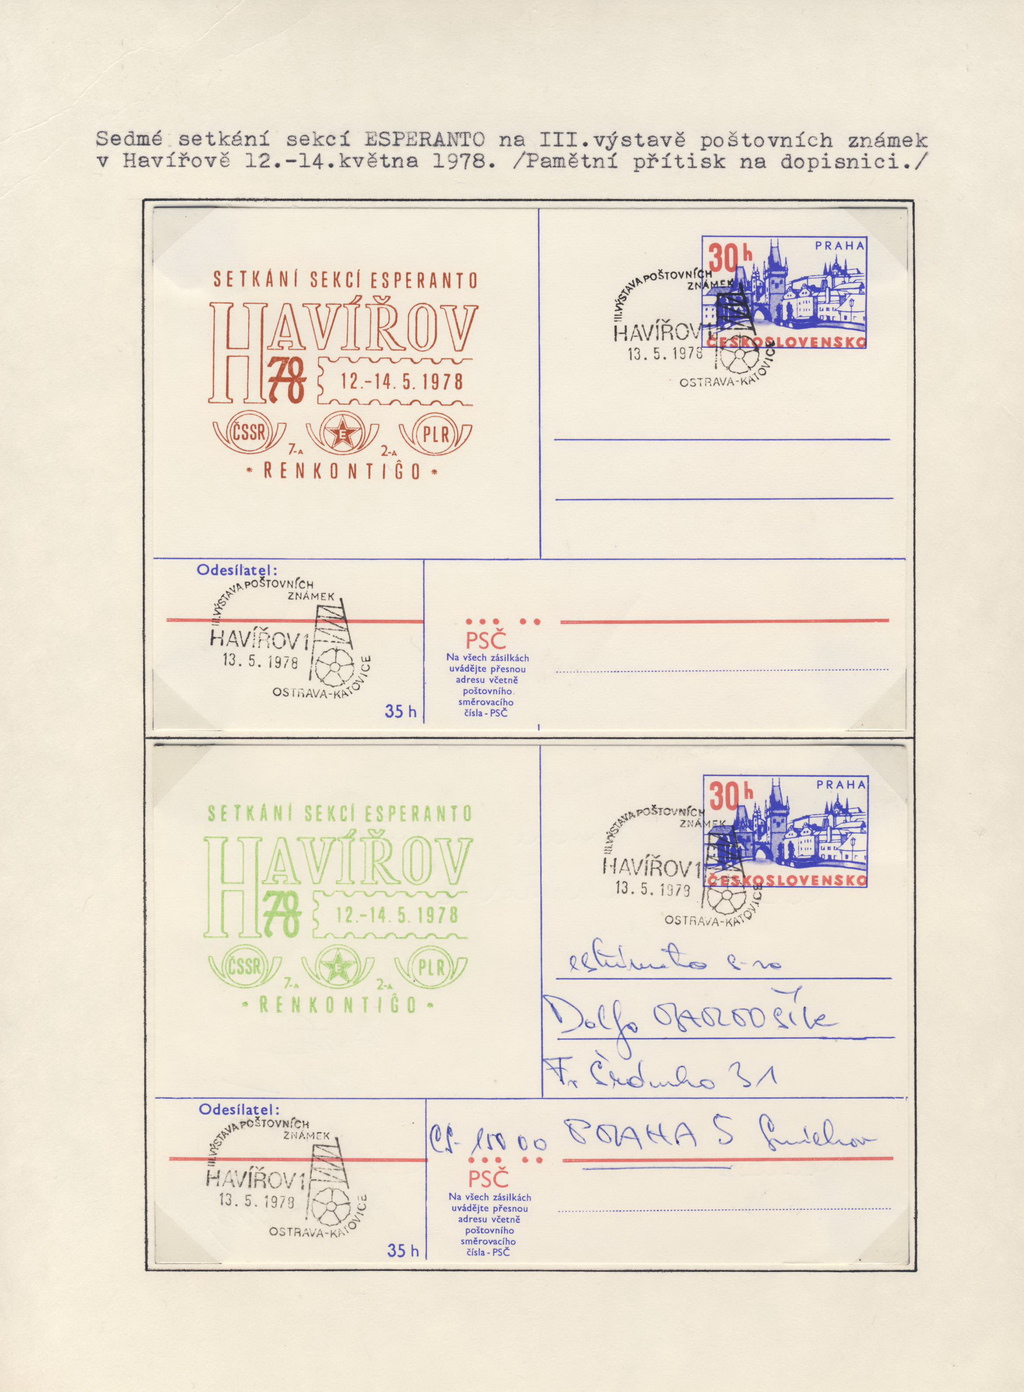 Sedmé setkání sekcí ESPERANTO na III.výstavě poštovních známek
v Havířově 12.-14.května 1978. /Pamětní přítisk na dopisnici./
SETKÁNÍ SEKCÍ ESPERANTO
HAVÍŘOV
78
12.-14.5.1978
ČSSR
7-A
E
2-A
PLR
• RENKONTIĜO •
30h
PRAHA
ČESKOSLOVENSKO
III.VÝSTAVA POŠTOVNÍCH
ZNÁMEK
HAVÍŘOV 1
13.5.1978
OSTRAVA-KATOVICE
Odesílatel:
III.VÝSTAVA POŠTOVNÍCH
ZNÁMEK
HAVÍŘOV 1
13.5.1978
OSTRAVA-KATOVICE
35 h
PSČ
Na všech zásilkách
uvádějte přesnou
adresu včetně
poštovního
směrovacího
čísla - PSČ
SETKÁNÍ SEKCÍ ESPERANTO
HAVÍŘOV
78
12.-14.5.1978
ČSSR
7-A
E
2-A
PLR
• RENKONTIĜO •
30h
PRAHA
ČESKOSLOVENSKO
III.VÝSTAVA POŠTOVNÍCH
ZNÁMEK
HAVÍŘOV 1
13.5.1978
OSTRAVA-KATOVICE
s-ro
Dolfo
31
PRAHA 5 Smíchov
Odesílatel:
III.VÝSTAVA POŠTOVNÍCH
ZNÁMEK
HAVÍŘOV 1
13.5.1978
OSTRAVA-KATOVICE
35 h
PSČ
Na všech zásilkách
uvádějte přesnou
adresu včetně
poštovního
směrovacího
čísla - PSČ